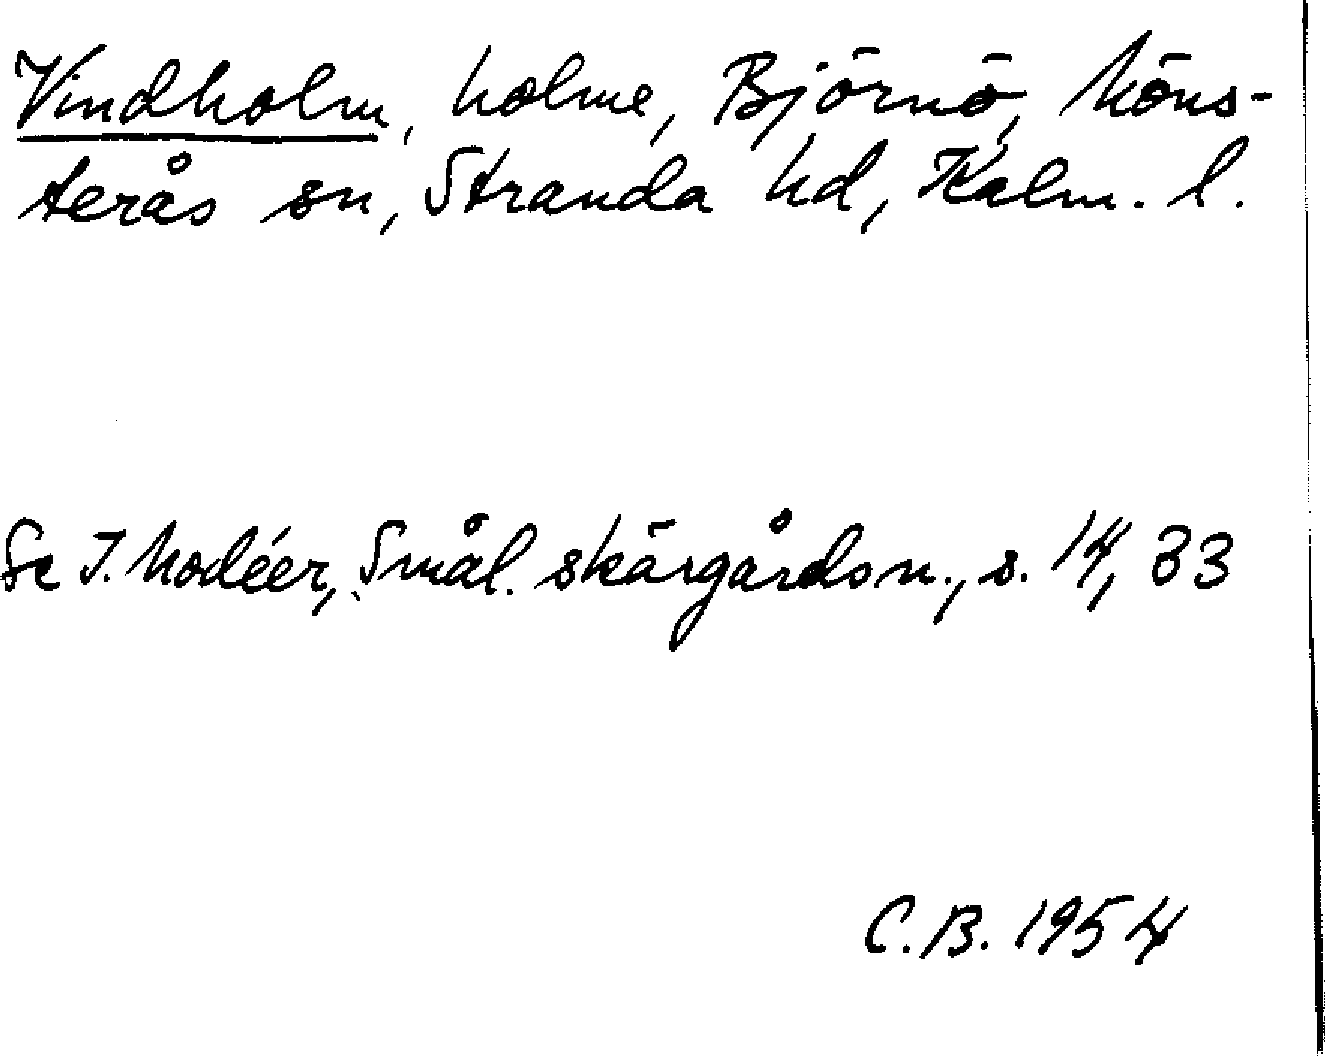 Vindholm, holme, Björnö, Möns-
terås sn, Stranda hd, Kalm. l.
Se I. Modéer, Smål. skärgårdsn., s. 14, 33
C.B. 1954